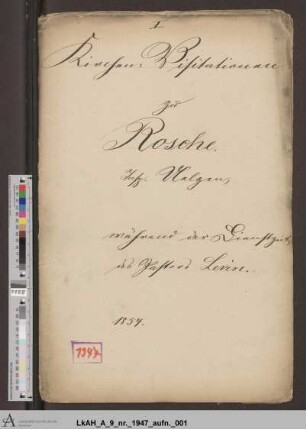 1
Kirchen-Visitationen
zu
Rosche.
Insp. Uelzen,
während der Dienstzeit
des Pastors Levin.
1854.
1947
LkAH_A_9_nr._1947_aufn._001